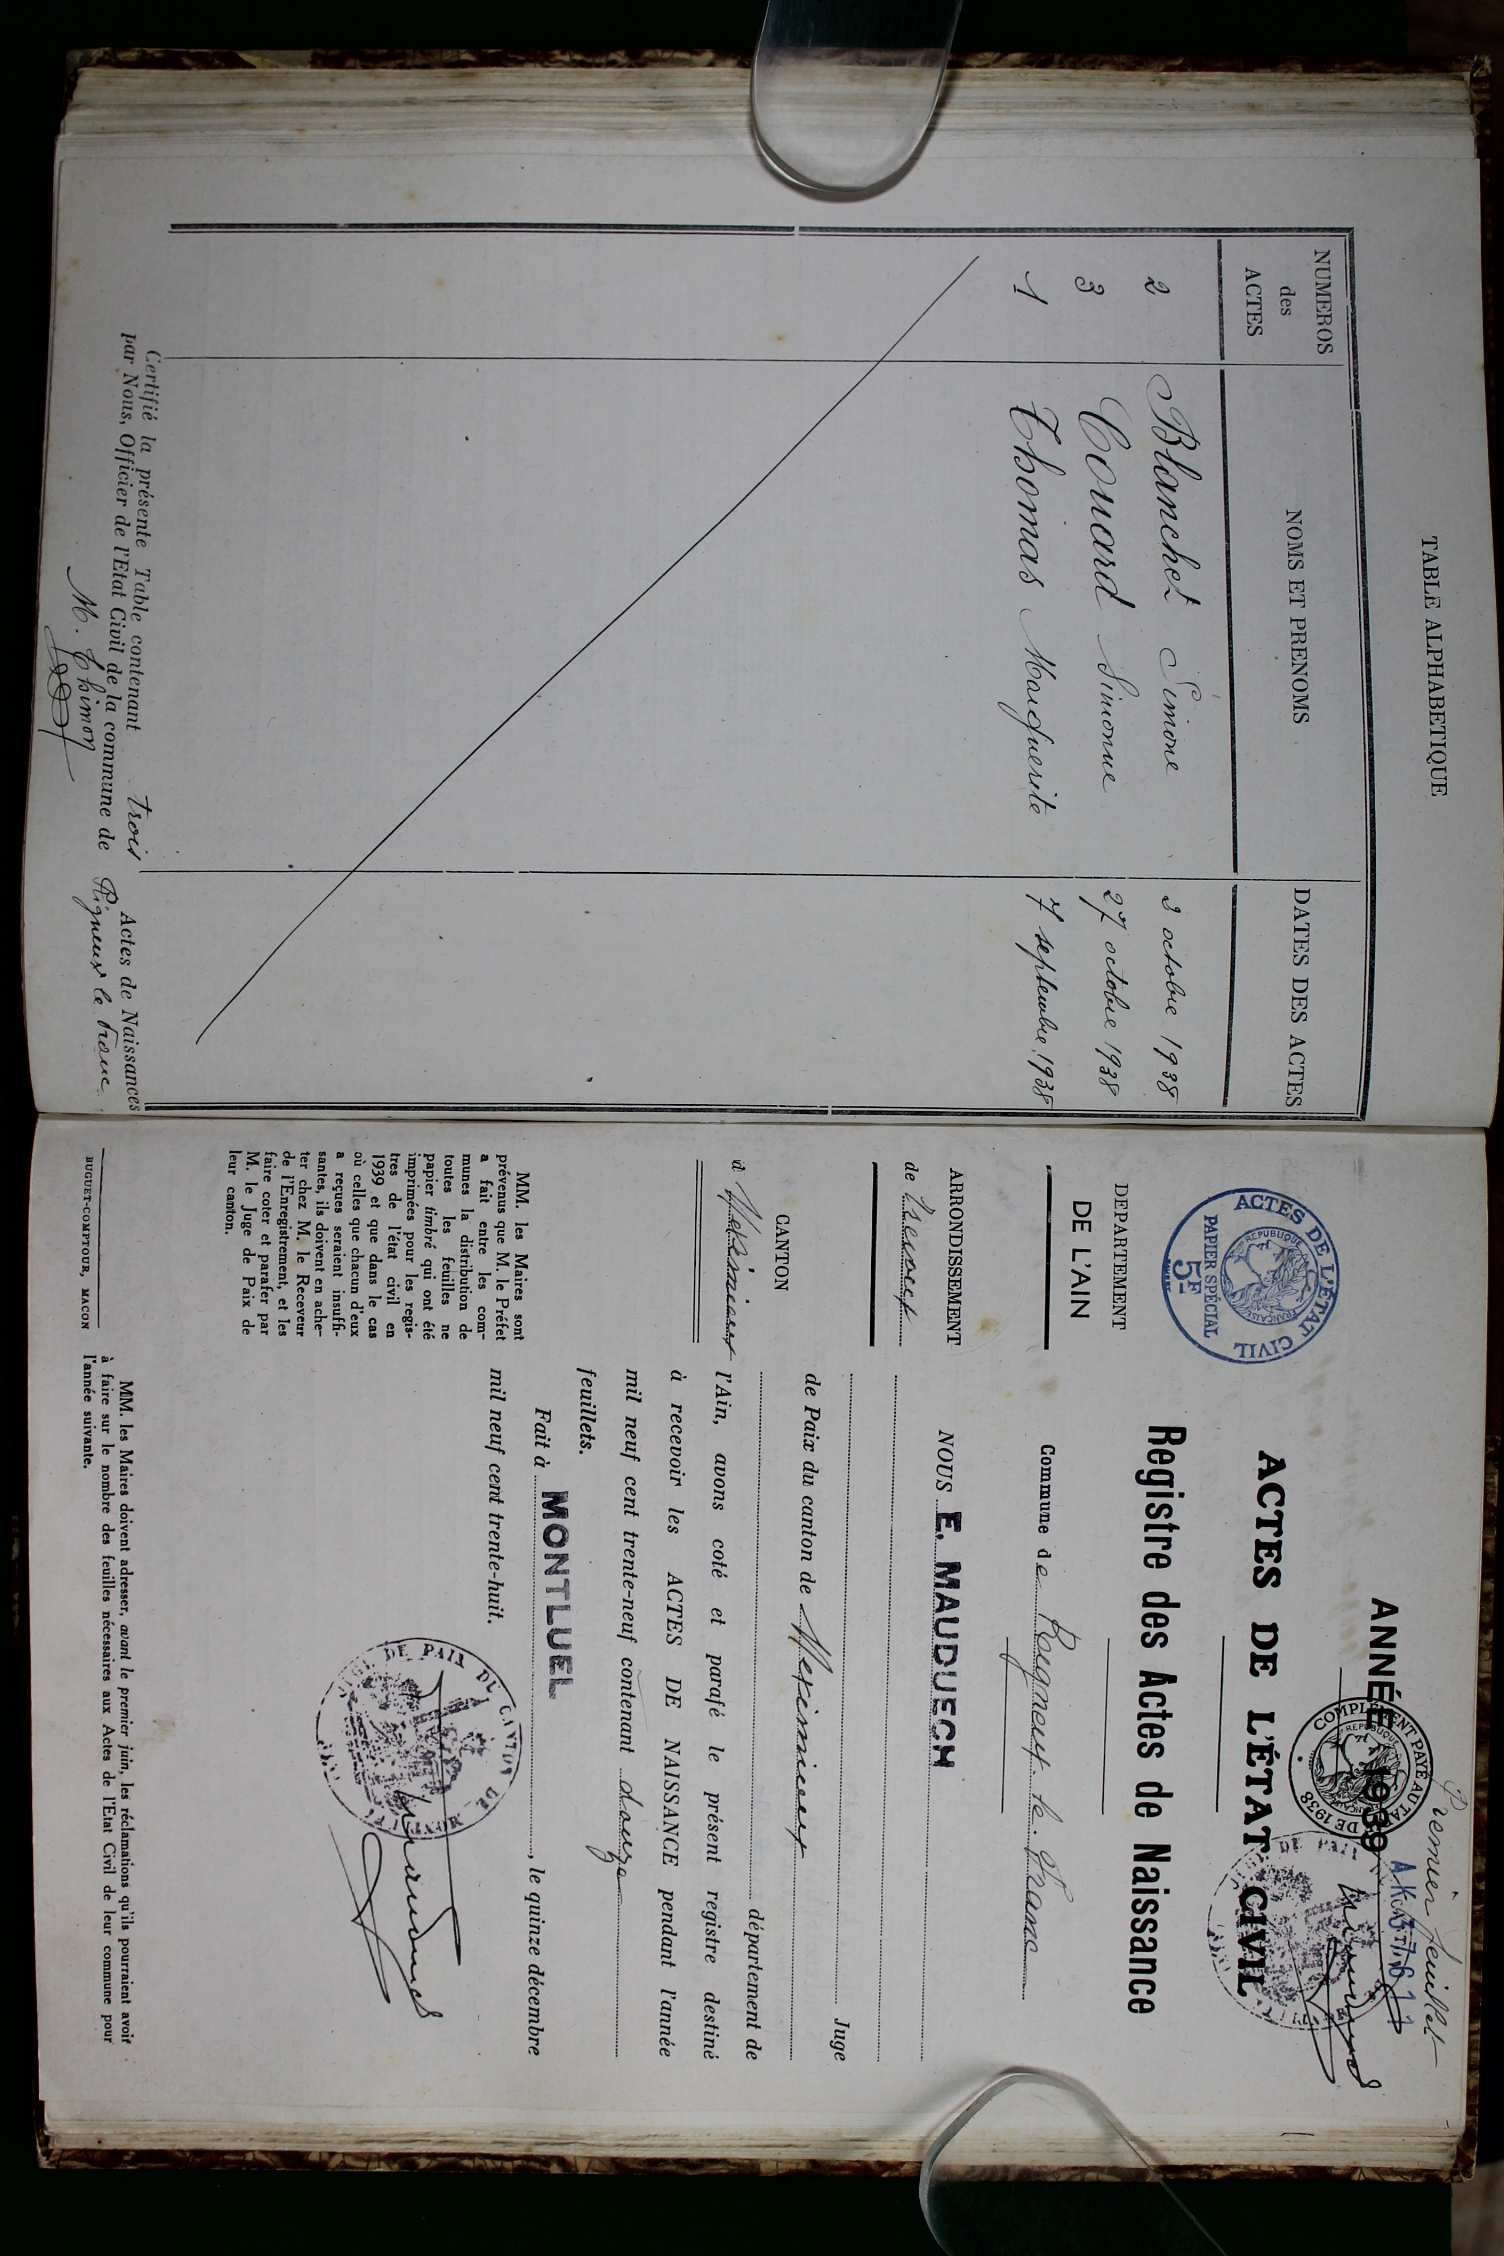 TABLE ALPHABETIQUE
NUMEROS des ACTES
NOMS ET PRENOMS
DATES DES ACTES
2 Blanchet Simone 2 octobre 1938
3 Couard Simonne 27 octobre 1938
1 Thomas Marguerite 7 septembre 1938
Certifié la présente Table contenant trois Actes de Naissances
par Nous, Officier de l'Etat Civil de la commune de Rigneux le Franc
M. Thimon
Premier feuillet
ANNÉE 1939
COMPLÉMENT PAYÉ AU TA DE 1938
ACTES DE L'ÉTAT CIVIL
REPUBLIQUE FRANÇAISE
PAPIER SPÉCIAL
5F
ACTES DE L'ÉTAT CIVIL
Registre des Actes de Naissance
Commune de Rigneux le Franc
DEPARTEMENT
DE L'AIN
ARRONDISSEMENT
de Trevoux
CANTON
d Meximieux
MM. les Maires sont
prévenus que M. le Préfet
a fait entre les com-
munes la distribution de
toutes les feuilles ne
papier timbré qui ont été
imprimées pour les regis-
tres de l'état civil en
1939 et que dans le cas
où celles que chacun d'eux
a reçues seraient insuffi-
santes, ils doivent en ache-
ter chez M. le Receveur
de l'Enregistrement, et les
faire coter et parafer par
M. le Juge de Paix de
leur canton.
BUGUET-COMPTOUR, MACON
NOUS E. MAUDUECH
Juge
de Paix du canton de Meximieux
département de
l'Ain, avons coté et parafé le présent registre destiné
à recevoir les ACTES DE NAISSANCE pendant l'année
mil neuf cent trente-neuf contenant douze
feuillets.
Fait à MONTLUEL, le quinze décembre
mil neuf cent trente-huit.
DE PAIX DU CANTON DE
MM. les Maires doivent adresser, avant le premier juin, les réclamations qu'ils pourraient avoir
à faire sur le nombre des feuilles nécessaires aux Actes de l'Etat Civil de leur commune pour
l'année suivante.